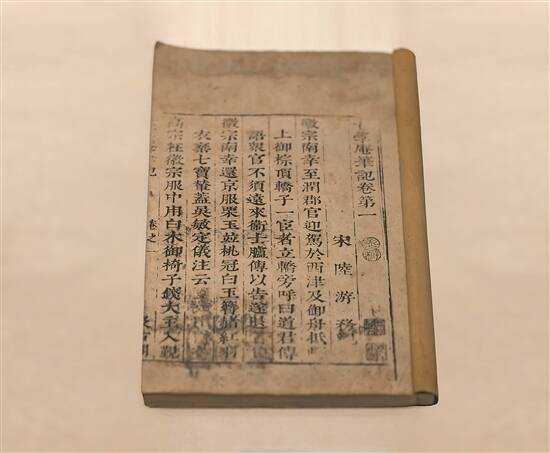 學庵筆記卷第一
宋陸游務
徽宗南幸至潤郡官迎駕於西津及御舟抵
上御棕頂轎子一宦者立轎旁呼曰道君傳
語眾官不須遠來衞士臚傳以告遂退
徽宗南幸還京服栗玉竝桃冠白玉簪赭紅羽
衣乘七寶輦蓋吳敏定儀注云
高宗在徽宗服中用白木御椅子錢大主入覲
記 卷之一